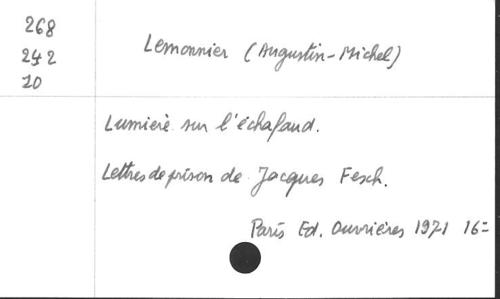 268
242
10
Lemonnier (Augustin-Michel)
Lumière sur l'échafaud.
Lettres de prison de Jacques Fesch.
Paris Ed. Ouvrières 1971 16=